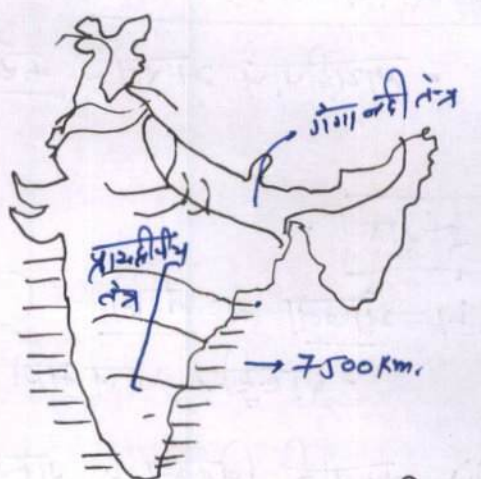 गंगा नदी तंत्र
प्रायद्वीपीय
तंत्र
→ 7500 Km.